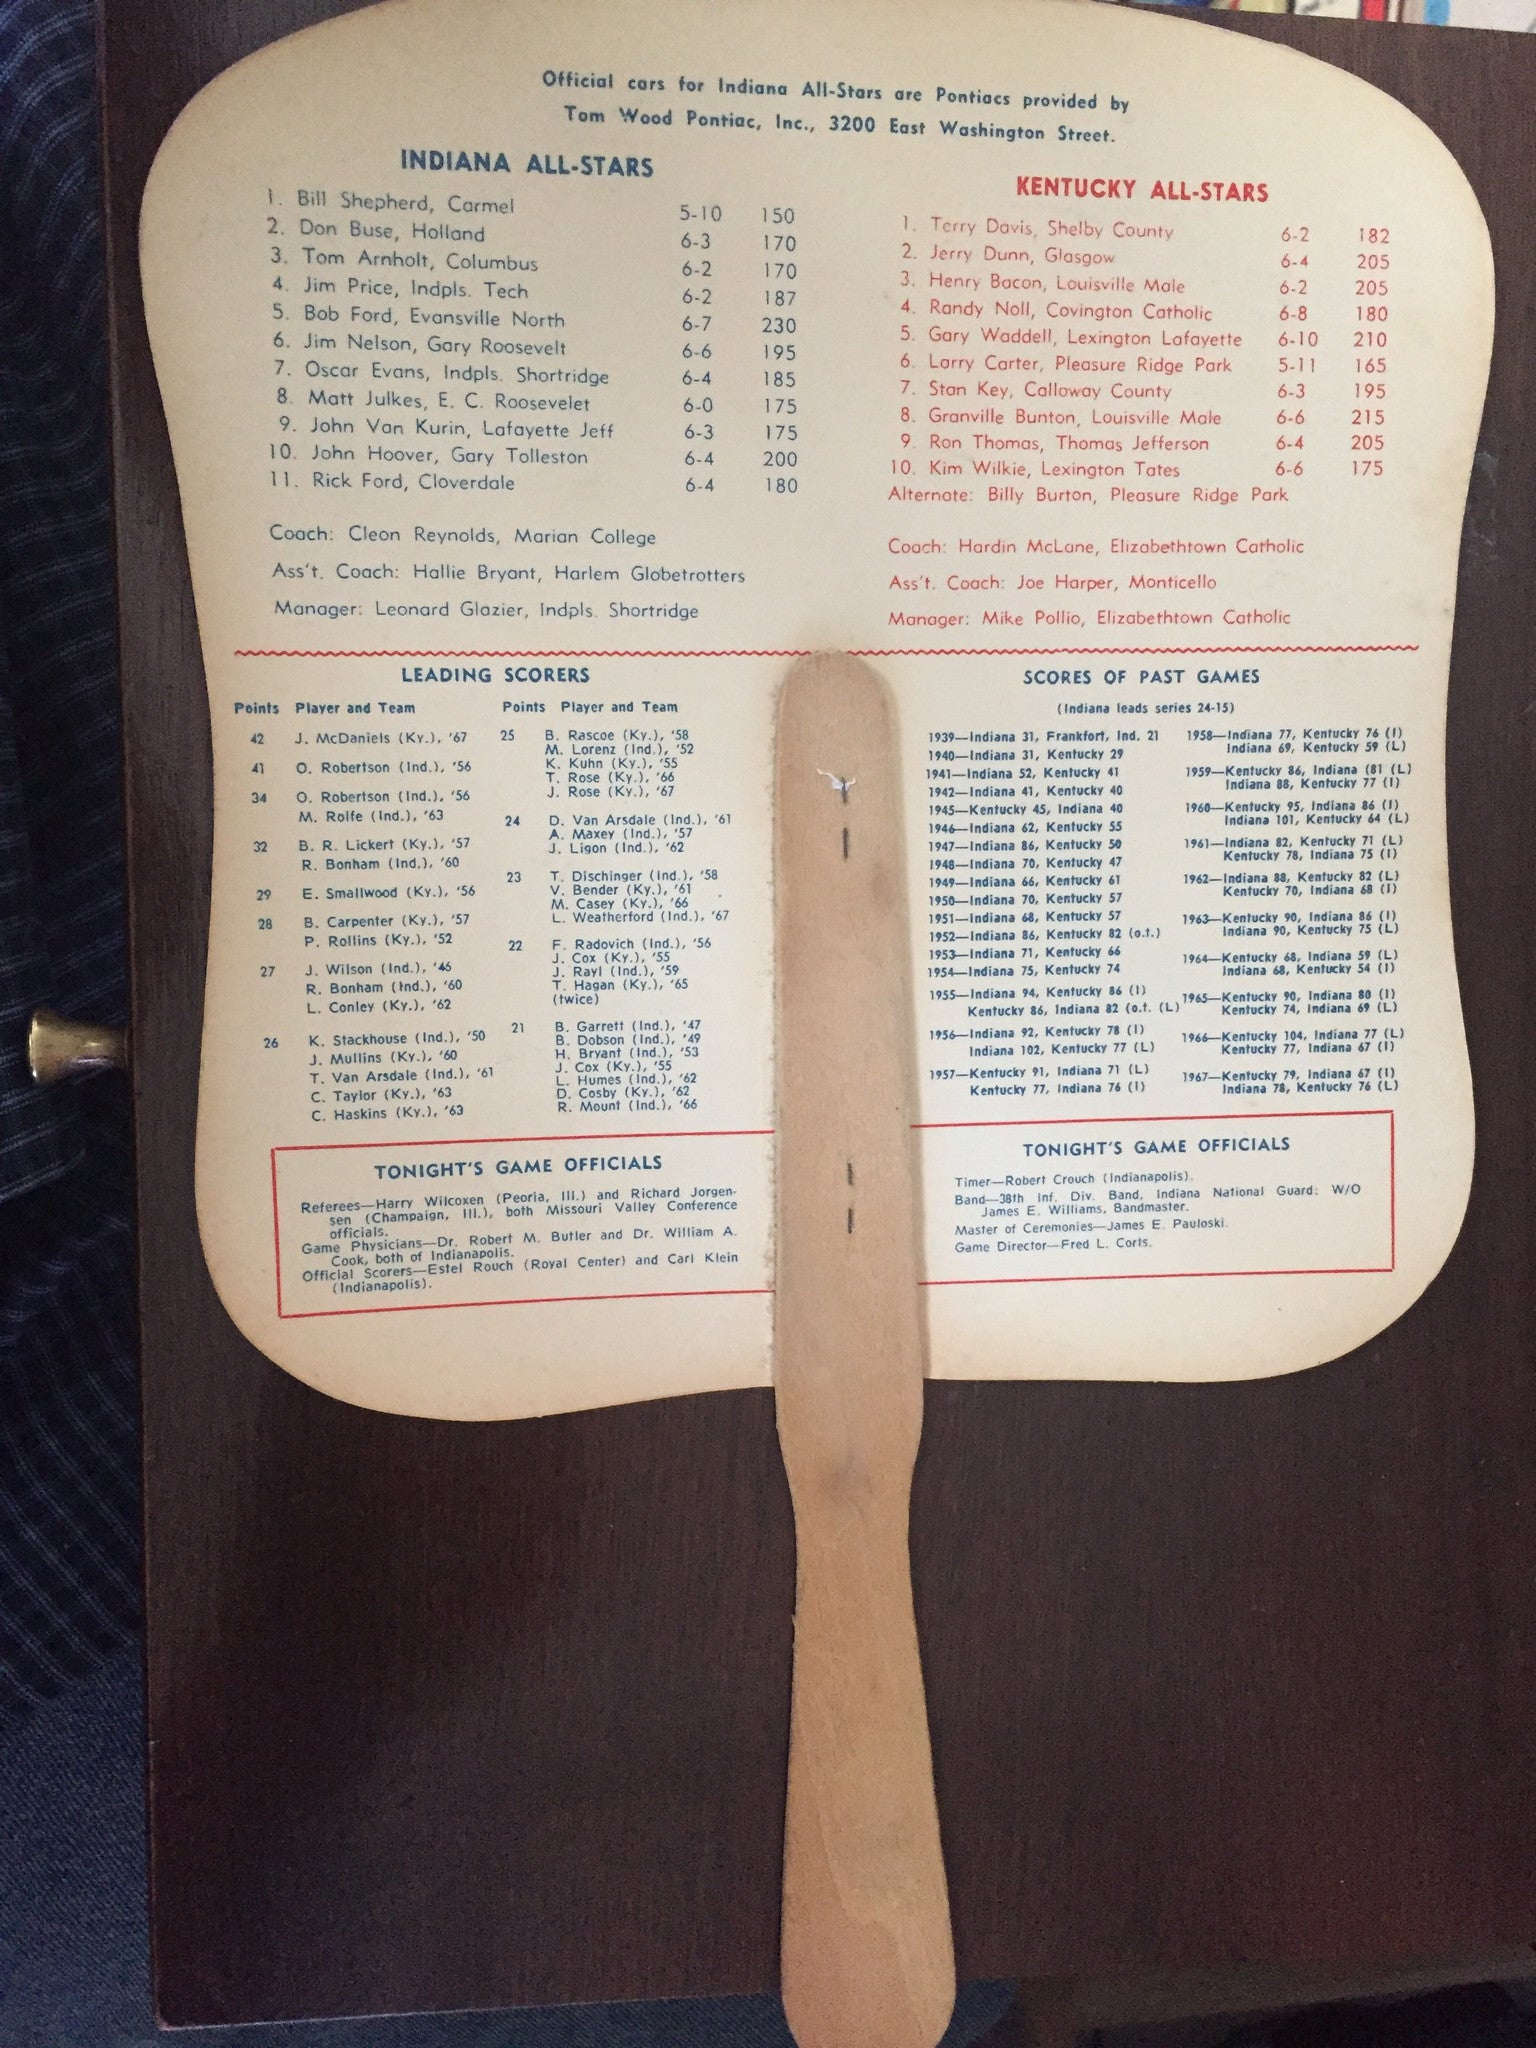 Official cars for Indiana All-Stars are Pontiacs provided by
Tom Wood Pontiac, Inc., 3200 East Washington Street.
INDIANA ALL-STARS
1. Bill Shepherd, Carmel 5-10 150
2. Don Buse, Holland 6-3 170
3. Tom Arnholt, Columbus 6-2 170
4. Jim Price, Indpls. Tech 6-2 187
5. Bob Ford, Evansville North 6-7 230
6. Jim Nelson, Gary Roosevelt 6-6 195
7. Oscar Evans, Indpls. Shortridge 6-4 185
8. Matt Julkes, E. C. Roosevelet 6-0 175
9. John Van Kurin, Lafayette Jeff 6-3 175
10. John Hoover, Gary Tolleston 6-4 200
11. Rick Ford, Cloverdale 6-4 180
Coach: Cleon Reynolds, Marian College
Ass't. Coach: Hallie Bryant, Harlem Globetrotters
Manager: Leonard Glazier, Indpls. Shortridge
KENTUCKY ALL-STARS
1. Terry Davis, Shelby County 6-2 182
2. Jerry Dunn, Glasgow 6-4 205
3. Henry Bacon, Louisville Male 6-2 205
4. Randy Noll, Covington Catholic 6-8 180
5. Gary Waddell, Lexington Lafayette 6-10 210
6. Larry Carter, Pleasure Ridge Park 5-11 165
7. Stan Key, Calloway County 6-3 195
8. Granville Bunton, Louisville Male 6-6 215
9. Ron Thomas, Thomas Jefferson 6-4 205
10. Kim Wilkie, Lexington Tates 6-6 175
Alternate: Billy Burton, Pleasure Ridge Park
Coach: Hardin McLane, Elizabethtown Catholic
Ass't. Coach: Joe Harper, Monticello
Manager: Mike Pollio, Elizabethtown Catholic
LEADING SCORERS
Points Player and Team
42 J. McDaniels (Ky.), '67
41 O. Robertson (Ind.), '56
34 O. Robertson (Ind.), '56
M. Rolfe (Ind.), '63
32 B. R. Lickert (Ky.), '57
R. Bonham (Ind.), '60
29 E. Smallwood (Ky.), '56
28 B. Carpenter (Ky.), '57
P. Rollins (Ky.), '52
27 J. Wilson (Ind.), '46
R. Bonham (Ind.), '60
L. Conley (Ky.), '62
26 K. Stackhouse (Ind.), '50
J. Mullins (Ky.), '60
T. Van Arsdale (Ind.), '61
C. Taylor (Ky.), '63
C. Haskins (Ky.), '63
Points Player and Team
25 B. Rascoe (Ky.), '58
M. Lorenz (Ind.), '52
K. Kuhn (Ky.), '55
T. Rose (Ky.), '66
J. Rose (Ky.), '67
24 D. Van Arsdale (Ind.), '61
A. Maxey (Ind.), '57
J. Ligon (Ind.), '62
23 T. Dischinger (Ind.), '58
V. Bender (Ky.), '61
M. Casey (Ky.), '66
L. Weatherford (Ind.), '67
22 F. Radovich (Ind.), '56
J. Cox (Ky.), '55
J. Rayl (Ind.), '59
T. Hagan (Ky.), '65
(twice)
21 B. Garrett (Ind.), '47
B. Dobson (Ind.), '49
H. Bryant (Ind.), '53
J. Cox (Ky.), '55
L. Humes (Ind.), '62
D. Cosby (Ky.), '62
R. Mount (Ind.), '66
SCORES OF PAST GAMES
(Indiana leads series 24-15)
1939—Indiana 31, Frankfort, Ind. 21
1940—Indiana 31, Kentucky 29
1941—Indiana 52, Kentucky 41
1942—Indiana 41, Kentucky 40
1945—Kentucky 45, Indiana 40
1946—Indiana 62, Kentucky 55
1947—Indiana 86, Kentucky 50
1948—Indiana 70, Kentucky 47
1949—Indiana 66, Kentucky 61
1950—Indiana 70, Kentucky 57
1951—Indiana 68, Kentucky 57
1952—Indiana 86, Kentucky 82 (o.t.)
1953—Indiana 71, Kentucky 66
1954—Indiana 75, Kentucky 74
1955—Indiana 94, Kentucky 86 (I)
Kentucky 86, Indiana 82 (o.t. (L)
1956—Indiana 92, Kentucky 78 (I)
Indiana 102, Kentucky 77 (L)
1957—Kentucky 91, Indiana 71 (L)
Kentucky 77, Indiana 76 (I)
1958—Indiana 77, Kentucky 76 (I)
Indiana 69, Kentucky 59 (L)
1959—Kentucky 86, Indiana (81 (L)
Indiana 88, Kentucky 77 (I)
1960—Kentucky 95, Indiana 86 (I)
Indiana 101, Kentucky 64 (L)
1961—Indiana 82, Kentucky 71 (L)
Kentucky 78, Indiana 75 (I)
1962—Indiana 88, Kentucky 82 (L)
Kentucky 70, Indiana 68 (I)
1963—Kentucky 90, Indiana 86 (I)
Indiana 90, Kentucky 75 (L)
1964—Kentucky 68, Indiana 59 (L)
Indiana 68, Kentucky 54 (I)
1965—Kentucky 90, Indiana 80 (I)
Kentucky 74, Indiana 69 (L)
1966—Kentucky 104, Indiana 77 (L)
Kentucky 77, Indiana 67 (I)
1967—Kentucky 79, Indiana 67 (I)
Indiana 78, Kentucky 76 (L)
TONIGHT'S GAME OFFICIALS
Referees—Harry Wilcoxen (Peoria, Ill.) and Richard Jorgen-
sen (Champaign, Ill.), both Missouri Valley Conference
officials.
Game Physicians—Dr. Robert M. Butler and Dr. William A.
Cook, both of Indianapolis.
Official Scorers—Estel Rouch (Royal Center) and Carl Klein
(Indianapolis).
TONIGHT'S GAME OFFICIALS
Timer—Robert Crouch (Indianapolis).
Band—38th Inf. Div. Band, Indiana National Guard: W/O
James E. Williams, Bandmaster.
Master of Ceremonies—James E. Pauloski.
Game Director—Fred L. Corts.